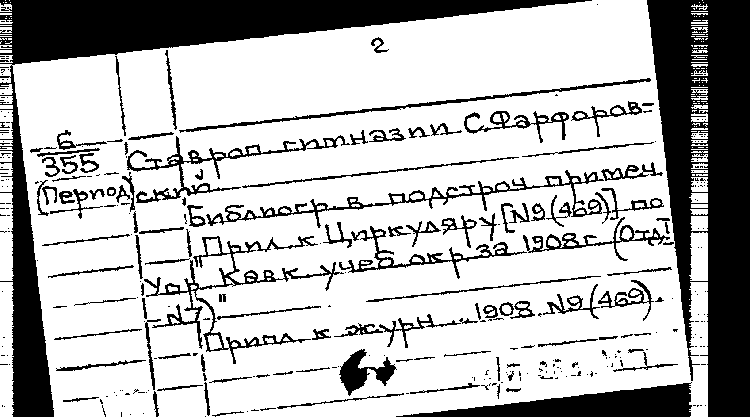 2
Б
355 Ставроп. гимназии С. Фарфоров-
(Период) ский.
Библиогр. в подстроч. примеч.
"Прил. к Циркуляру [N9 (469)] по
Упр. Кавк. учеб. окр. за 1908 г. (Отд. I
- N7)"
Прил. к журн. 1908. N9 (469).